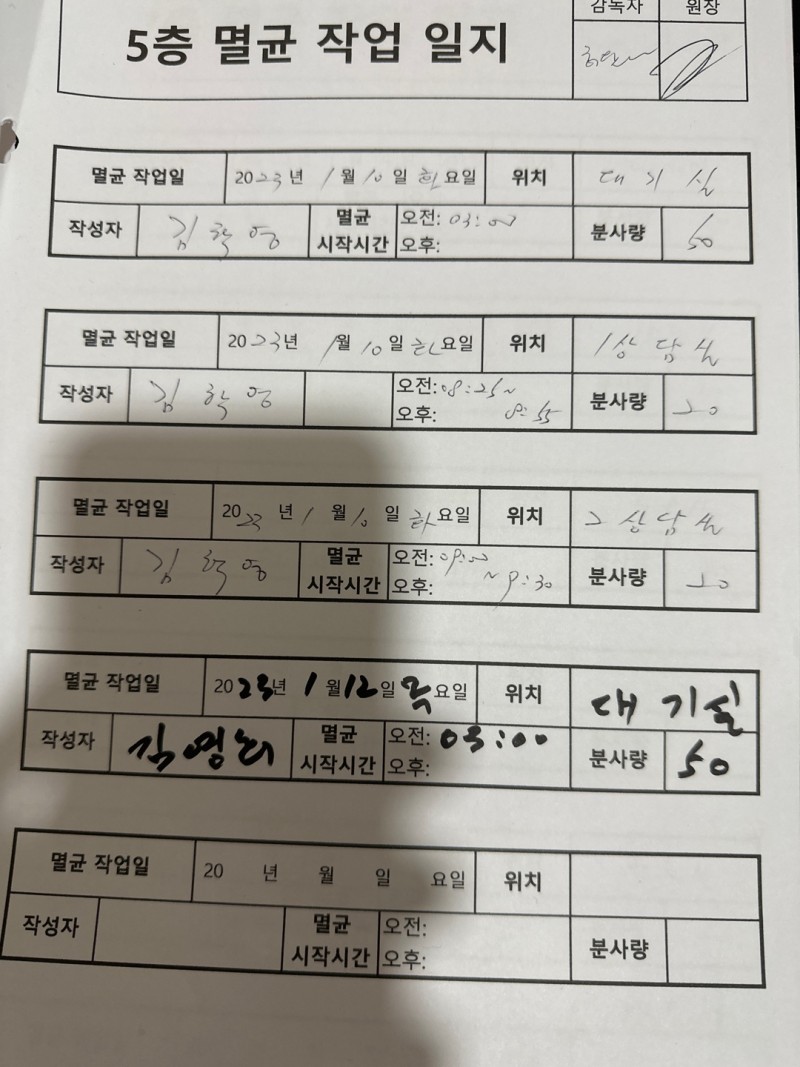 감독자 원장
5층 멸균 작업 일지
멸균 작업일 2023년 1월 10일 화요일 위치 대기실
작성자 김학영 멸균 시작시간 오전: 03:00 오후: 분사량 50
멸균 작업일 2023년 1월 10일 화요일 위치 1상담실
작성자 김학영 오전: 08:25~ 오후: 8:55 분사량 20
멸균 작업일 2023년 1월 10일 화요일 위치 2상담실
작성자 김학영 멸균 시작시간 오전: 09:00 오후: ~9:30 분사량 20
멸균 작업일 2023년 1월 12일 목요일 위치 대기실
작성자 김영희 멸균 시작시간 오전: 03:00 오후: 분사량 50
멸균 작업일 20 년 월 일 요일 위치
작성자 멸균 시작시간 오전: 오후: 분사량